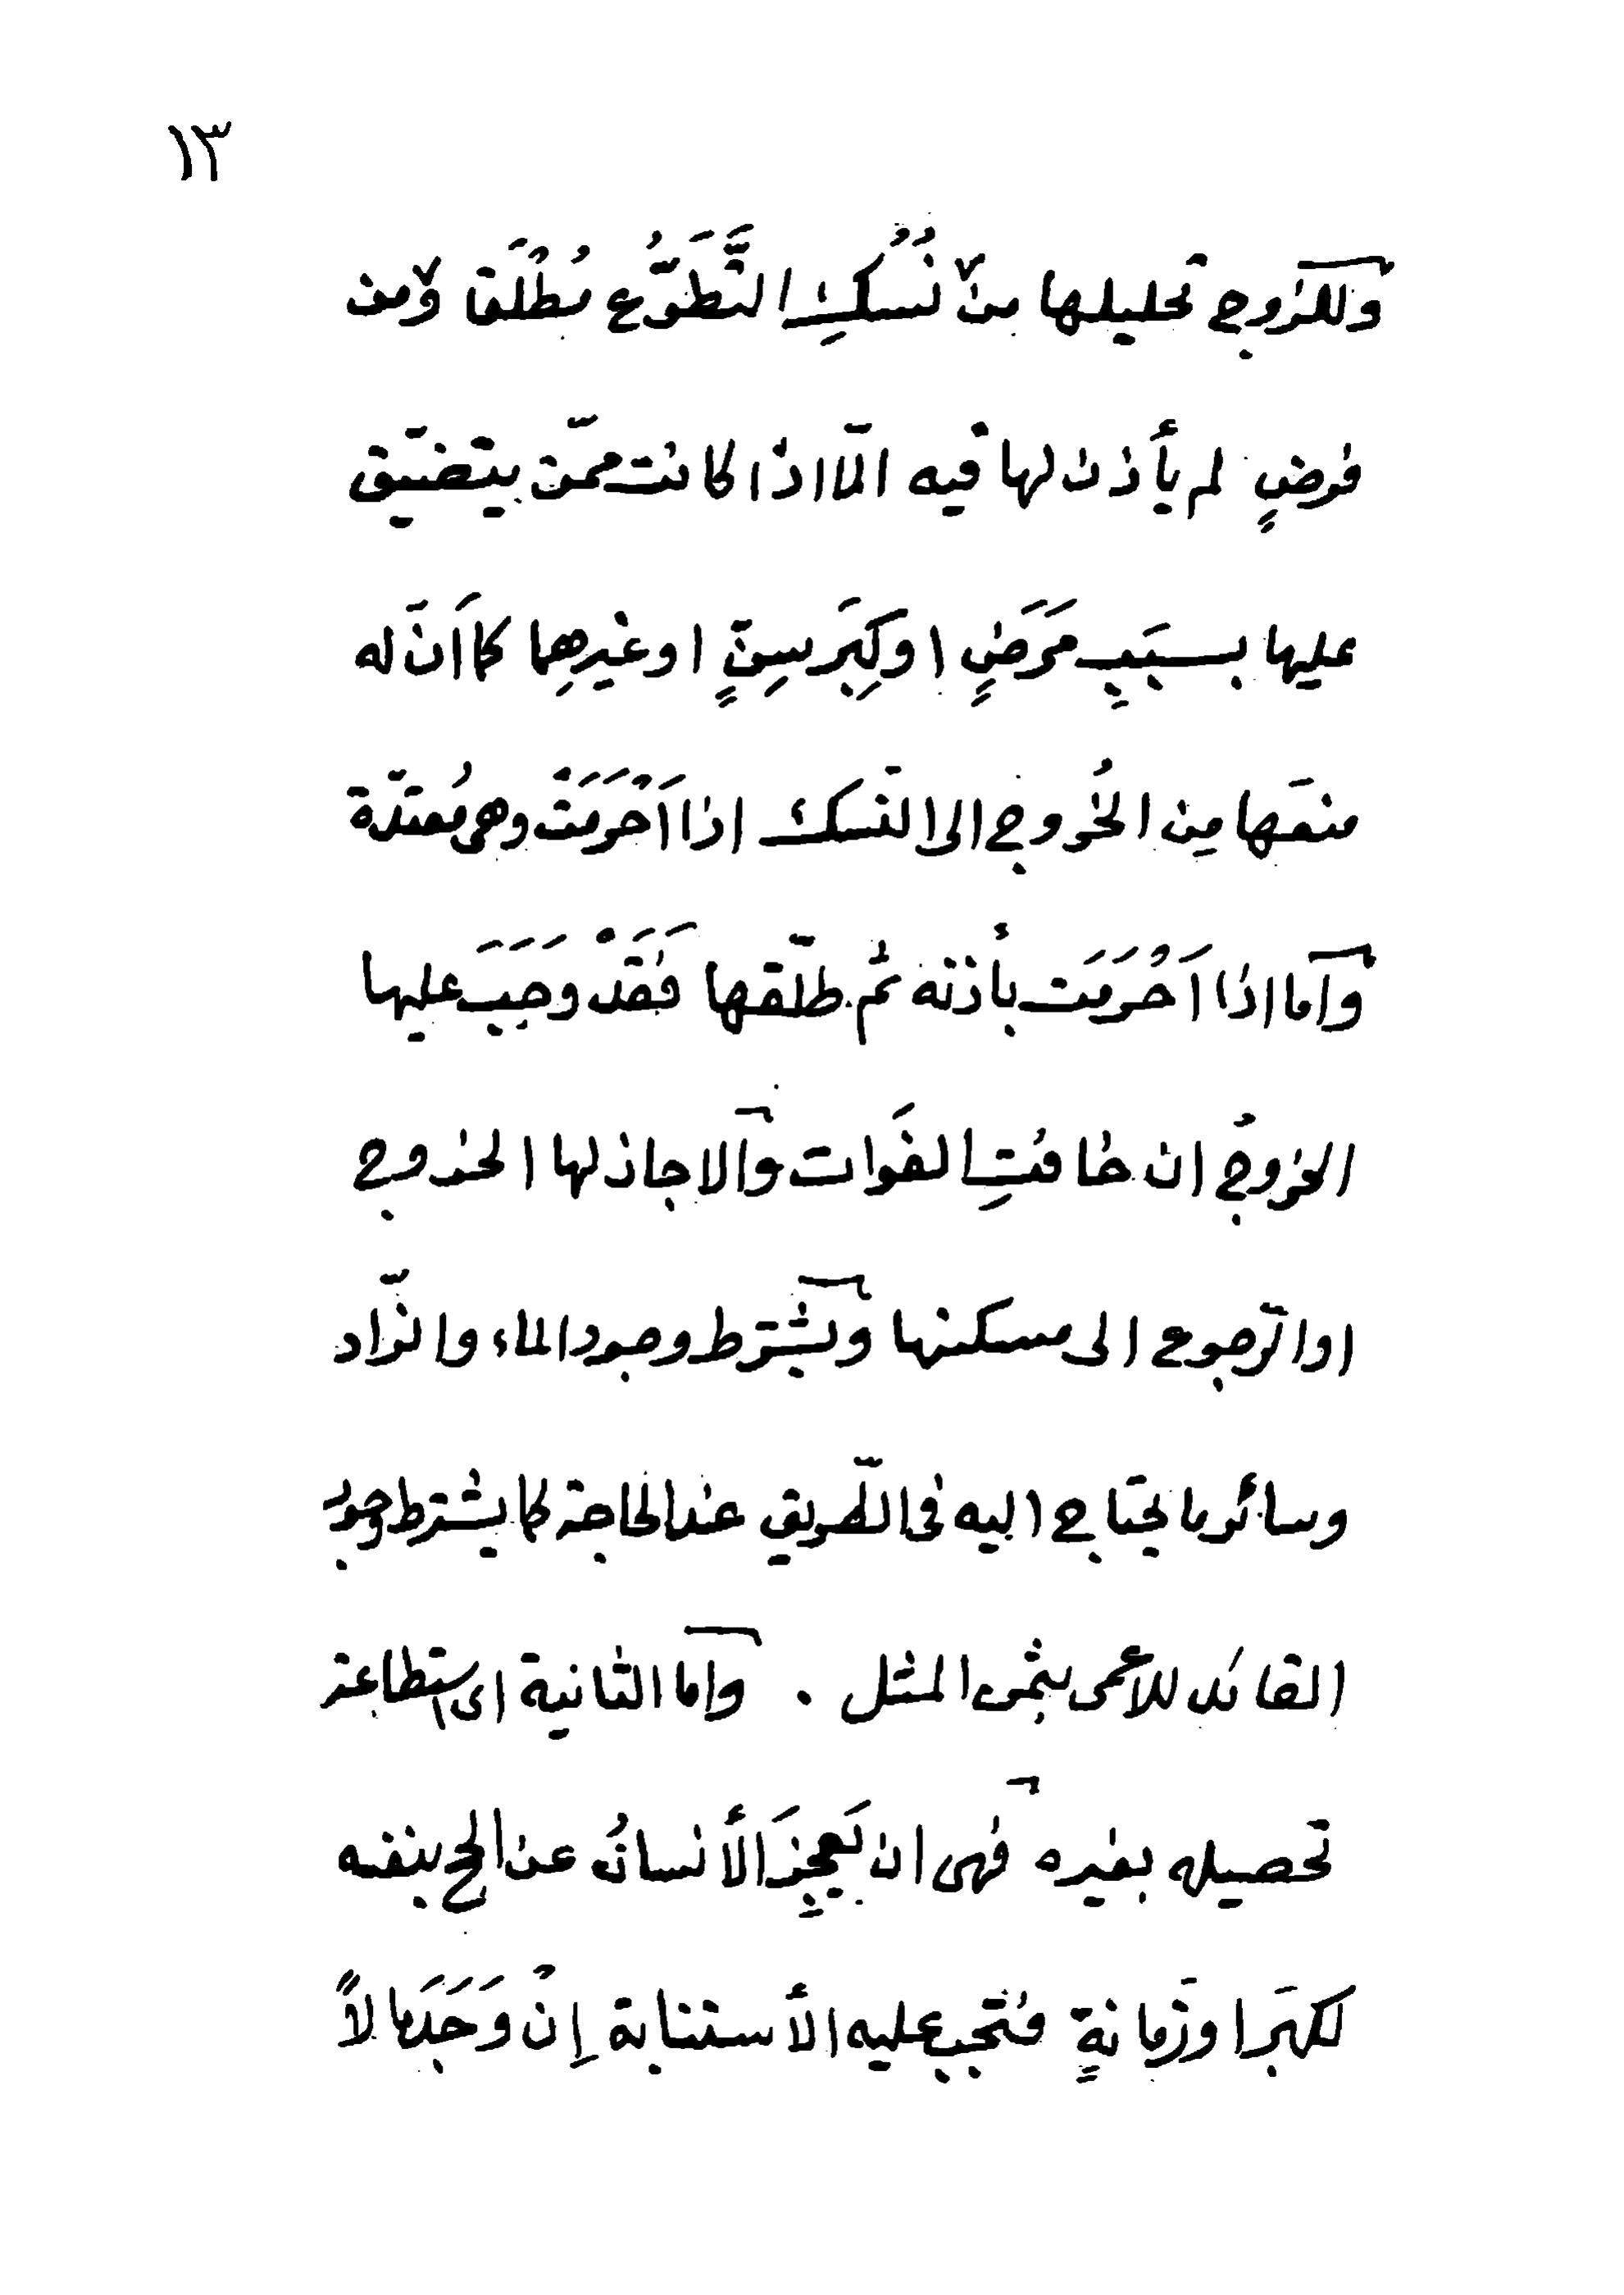 ١٣
وللزوج تحليلها من نُسُكِ التَّطَوُّع مُطْلَقا ومن
فرضٍ لم يأذن لها فيه الّا اذا كانت ممّن يتضيّق
عليها بسبَبِ مَرَضٍ او كِبَرِ سِنٍّ او غيرِهِما كما اَنّ له
منعَها مِن الخُروج الى النّسك اذا اَحْرَمَتْ وهى مُعتدّة
وَاَما اذا اَحْرَمَت بأذنه ثم طلّقها فَقَدْ وَجَبَ عليها
الخروجُ ان خافتِ الفَوات والا جاز لها الخروج
او الرّجوع الى مسكنها ويُشْتَرط وجود الماء والزّاد
وسائر ما يحتاج اليه فى الطّريق عند الحاجة كما يشترط وجود
القائد للاعمى بثمن المثل . واما الثانية اى استطاعة
تحصيله بغيره فهى ان يَعجِزَ الأنسانُ عن الحج بنفسه
لكبَر او زمانةٍ فتجب عليه الأستنابة إِنْ وَجَدَ مالاً